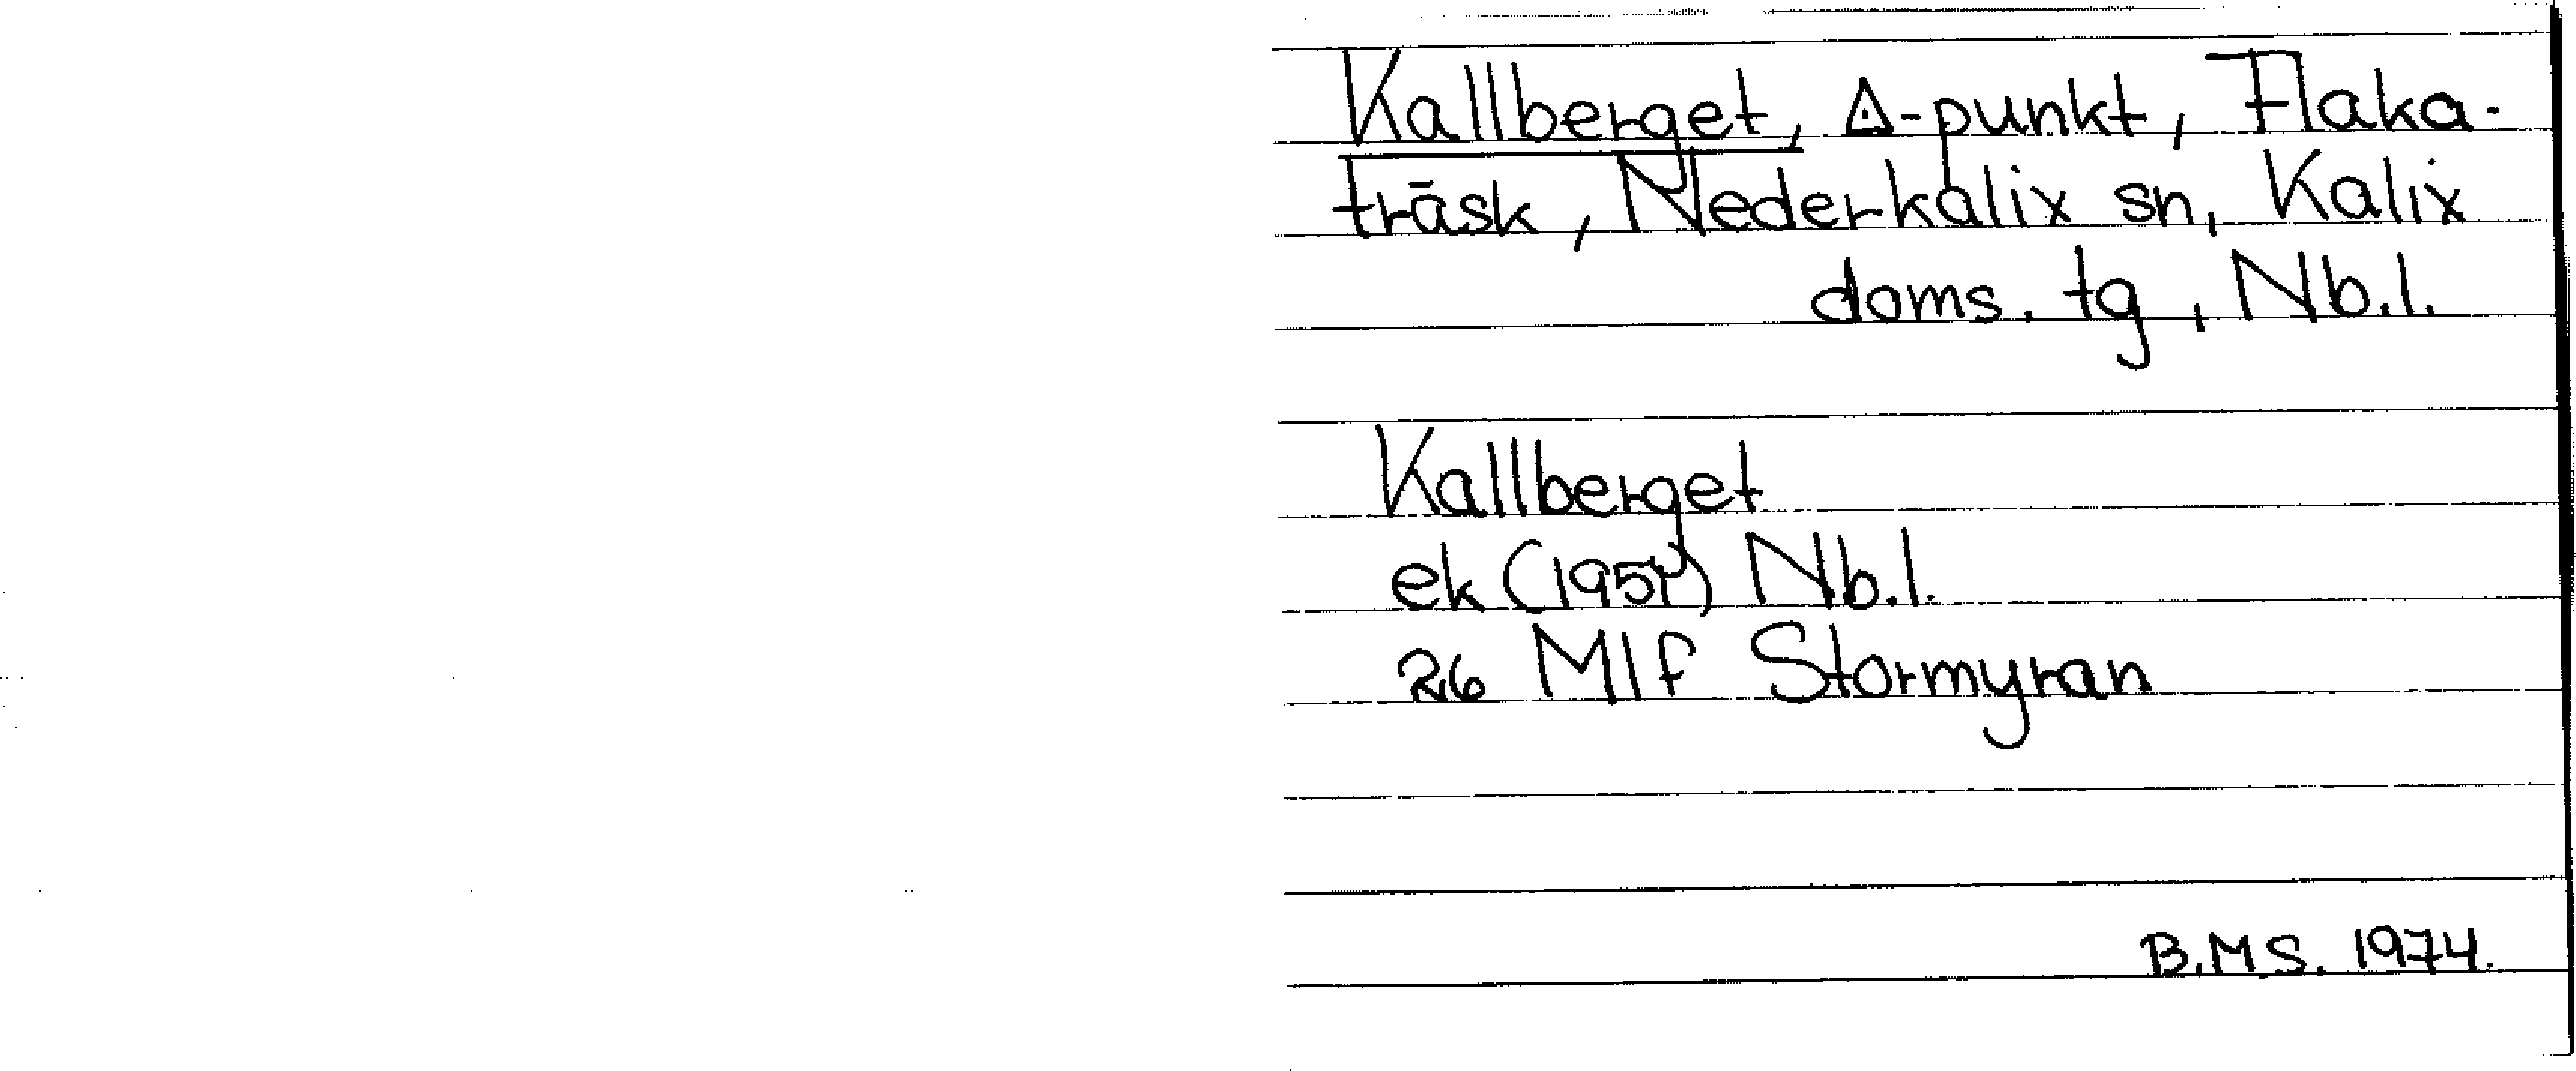 Kallberget, ∆-punkt, Flaka-
träsk, Nederkalix sn, Kalix
doms. tg, Nb.l.
Kallberget
ek (1957) Nb.l.
26 M1f Stormyran
B.M.S. 1974.